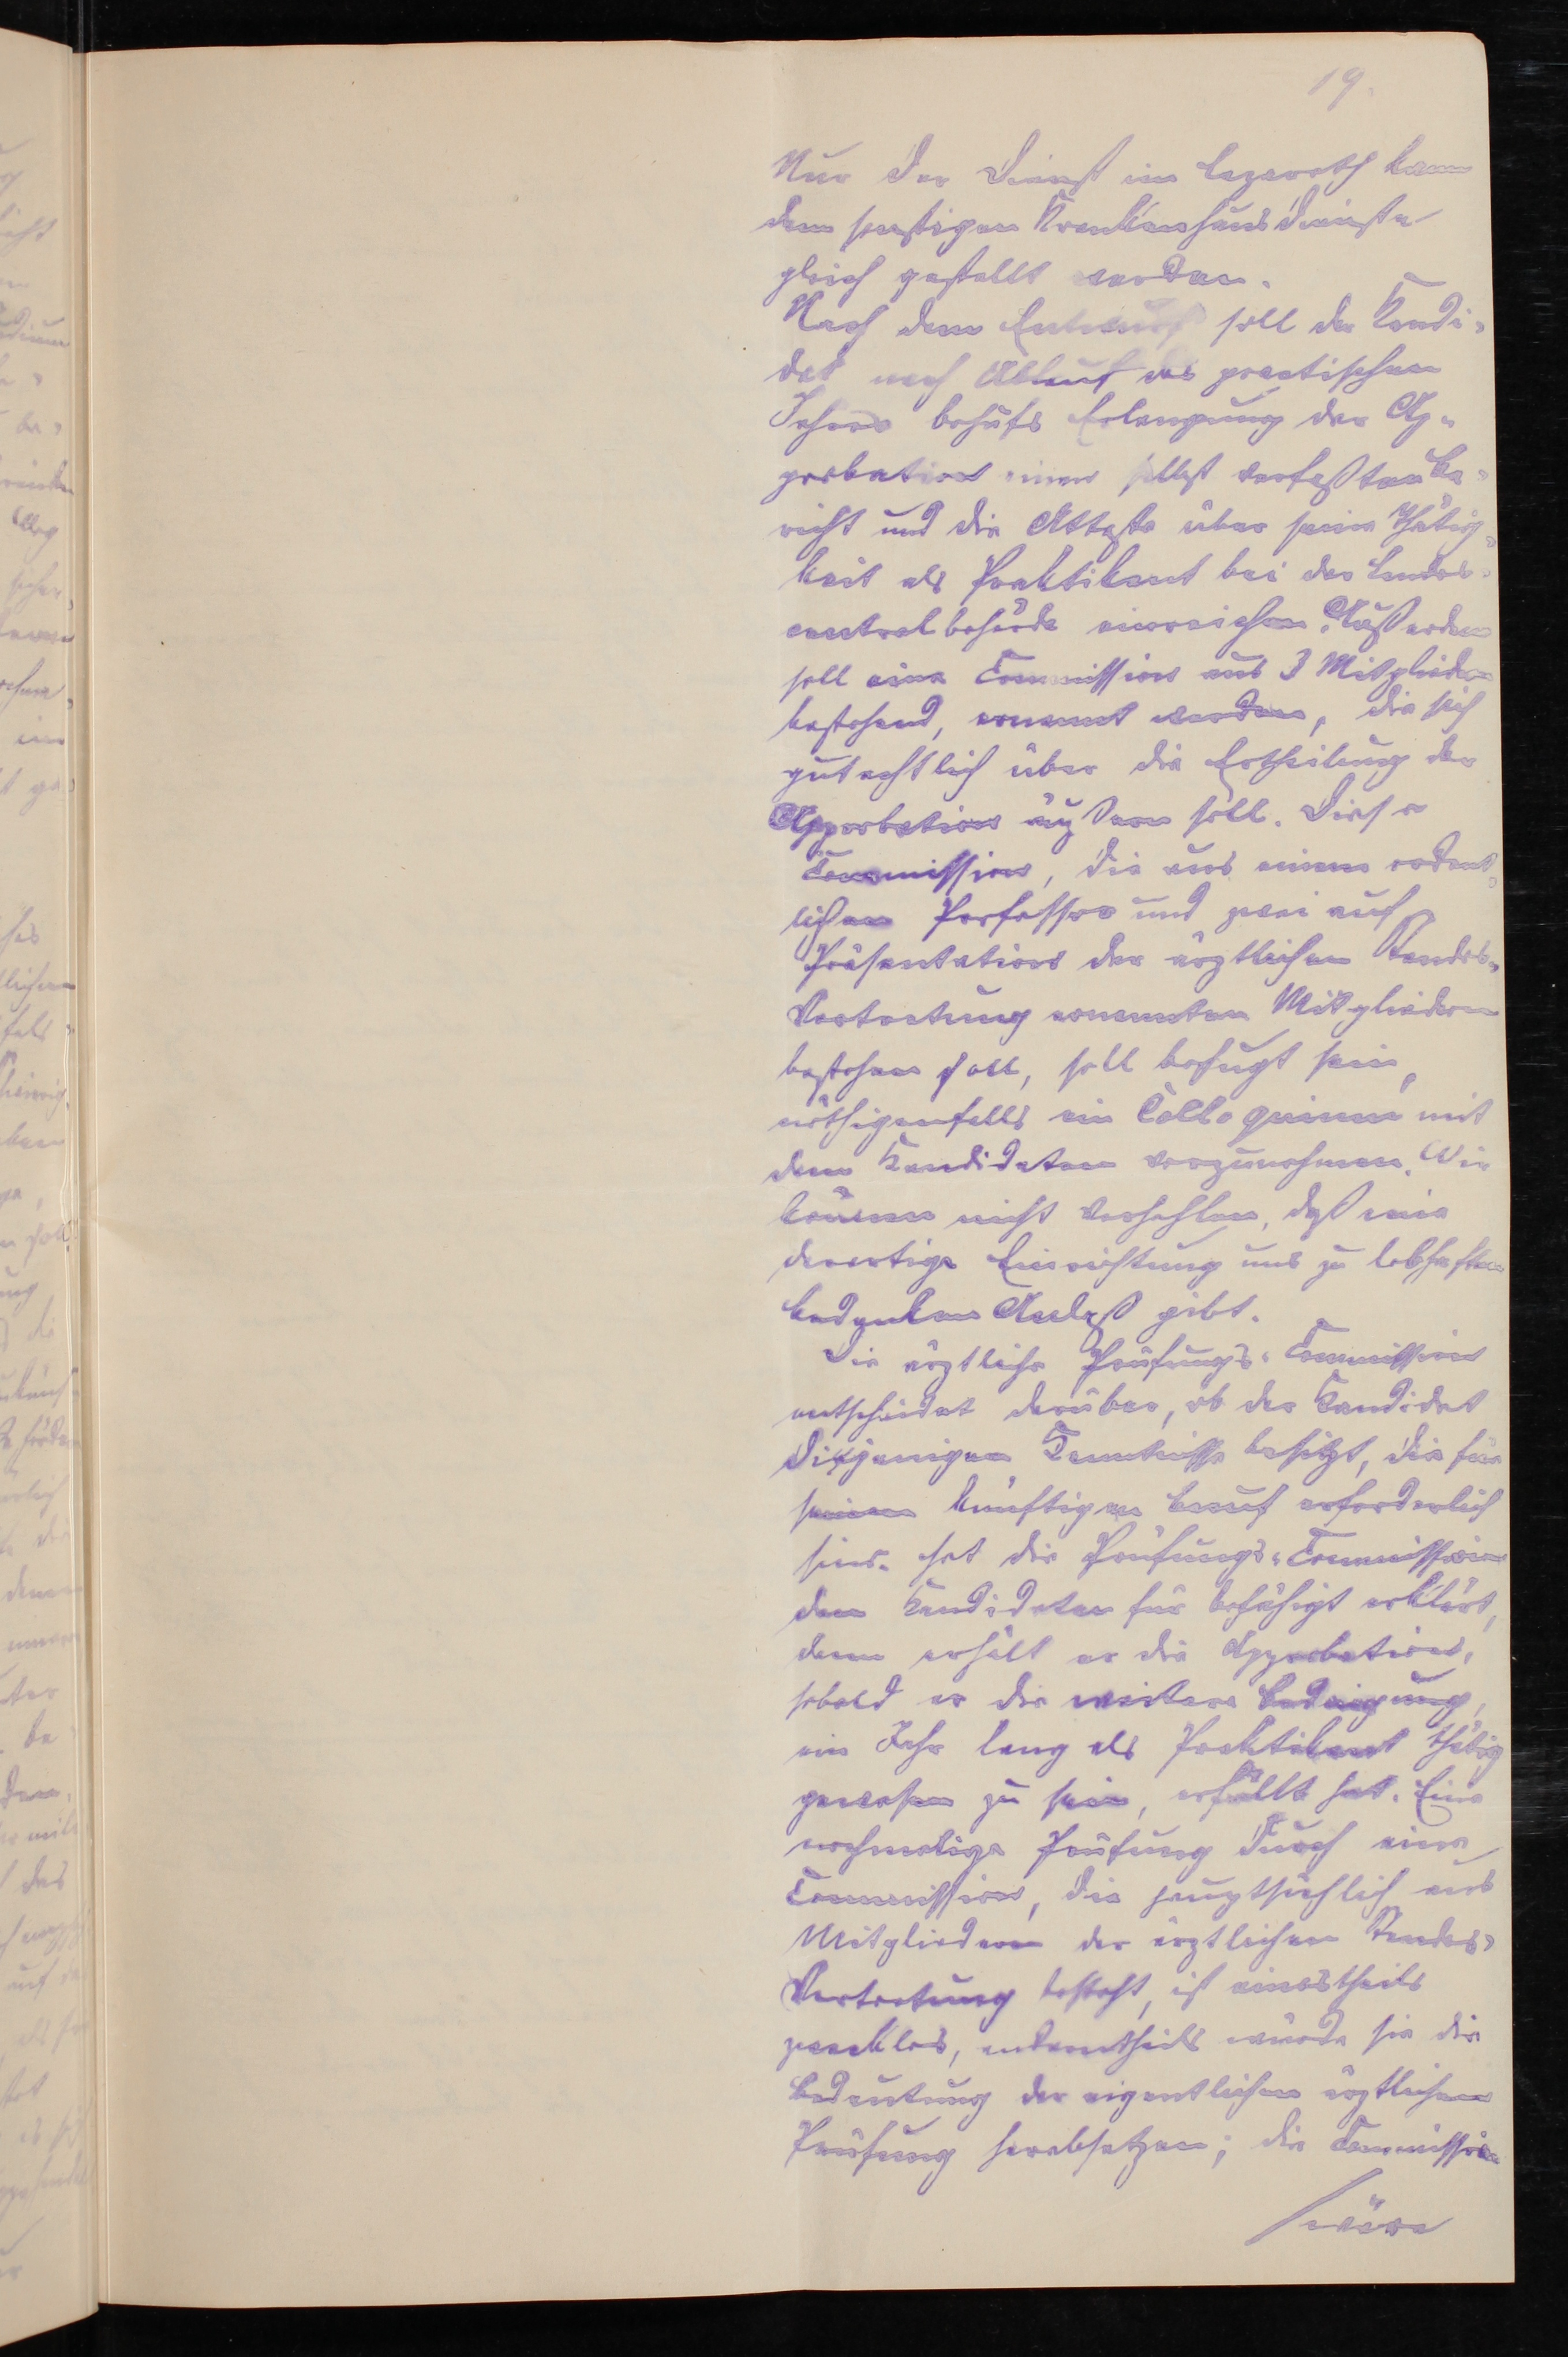 19.
Nur der Dienst im Lazareth kann
dem sonstigen Krankenhausdienste
gleich gestellt werden.
Nach dem Entwurf soll der Kandi-
dat nach Ablauf des practischen
Jahres behufs Erlangung der Ap-
probation einen selbst verfaßten Be-
richt und die Atteste über seine Thätig-
keit als Praktikant bei der Landes-
centralbehörde einreichen. Außerdem
soll eine Commission aus 3 Mitgliedern
bestehend, ernannt werden, die sich
gutachtlich über die Ertheilung der
Approbation äußern soll. Diese
Commission, die aus einem ordent-
lichen Professor und zwei auf
Präsentation der ärztlichen Standes-
Vertretung ernannten Mitgliedern
bestehen soll, soll befugt sein,
nöthigenfalls ein Colloquium mit
dem Kandidaten vorzunehmen. Wir
können nicht verhehlen, daß eine
derartige Einrichtung uns zu lebhaften
Bedenken Anlaß gibt.
Die ärztliche Prüfungs-Commission
entscheidet darüber, ob der Kandidat
diejenigen Kenntnisse besitzt, die für
seinen künftigen Beruf erforderlich
sind. Hat die Prüfungs-Commission
den Kandidaten für befähigt erklärt,
dann erhält er die Approbation,
sobald er die weitere Bedingung,
ein Jahr lang als Praktikant thätig
gewesen zu sein, erfüllt hat. Eine
nochmalige Prüfung durch eine
Commission, die hauptsächlich aus
Mitgliedern der ärztlichen Standes-
Vertretung besteht, ist einestheils
zwecklos, anderntheils würde sie die
Bedeutung der eigentlichen ärztlichen
Prüfung herabsetzen; die Commission
wäre